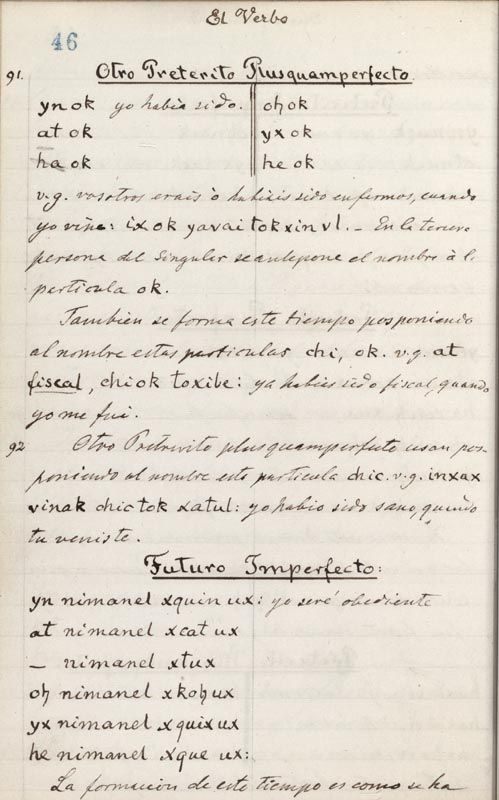 El Verbo
46
91. Otro Preterito Plusquamperfecto
yn ok yo habia sido. oh ok
at ok yx ok
ha ok he ok
v.g. vosotros erais ò habiais sido enfermos, cuando
yo vine: ix ok yavai tok xin vl. — En la tercera
persona del Singular se antepone el nombre à la
particula ok.
Tambien se forma este tiempo posponiendo
al nombre estas particulas chi, ok. v.g. at
fiscal, chi ok toxibe: ya habias sido fiscal, quando
yo me fui.
92 Otro Pretrivito plusquamperfecto usan pos-
poniendo al nombre esta particula chic. v.g. in xax
vinak chic tok xatul: yo habia sido sano, quando
tu veniste.
Futuro Imperfecto:
yn nimanel xquin ux: yo seré obediente
at nimanel xcat ux
— nimanel xtux
oh nimanel xkoh ux
yx nimanel xquix ux
he nimanel xque ux:
La formacion de este tiempo es como se ha